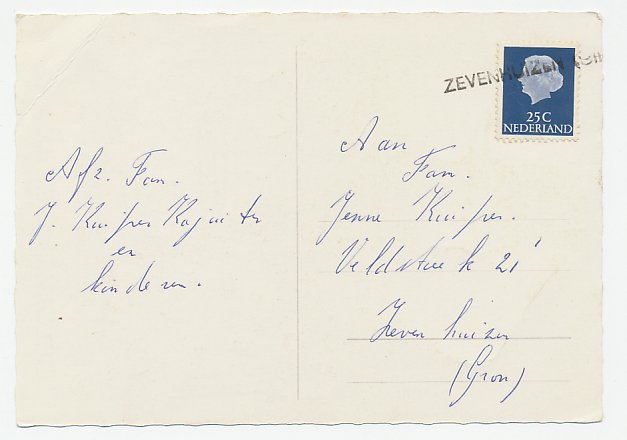 Afz. Fam.
J. Kuiper Kajuiter
en
kinderen.
ZEVENHUIZEN
25C
NEDERLAND
Aan
Fam.
Jenne Kuiper.
Veldstreek 21
Zevenhuizen
(Gron)